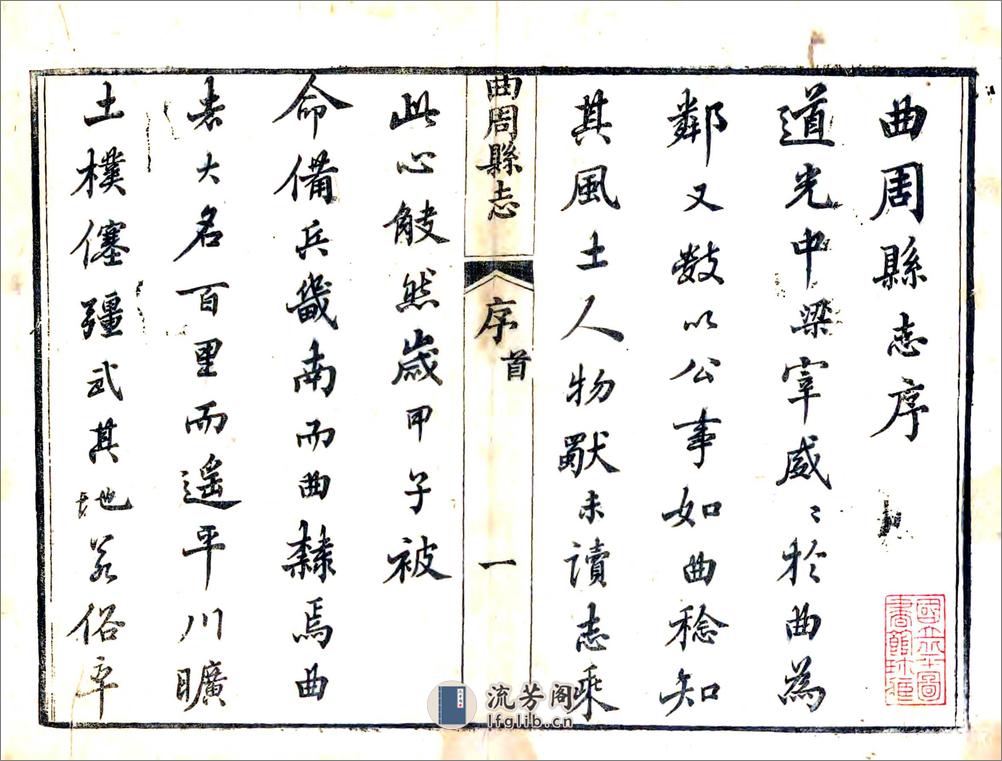 曲周縣志序
道光中梁宰威〻於曲為
鄰又數以公事如曲稔知
其風土人物未讀志乘
曲周縣志
序
首
一
此心觖然歲甲子被
命備兵畿南而曲隸焉曲
去大名百里而遥平川曠
土樸僿彊武其地若俗率
國立北平圖
書館
流芳阁
lfglib.cn